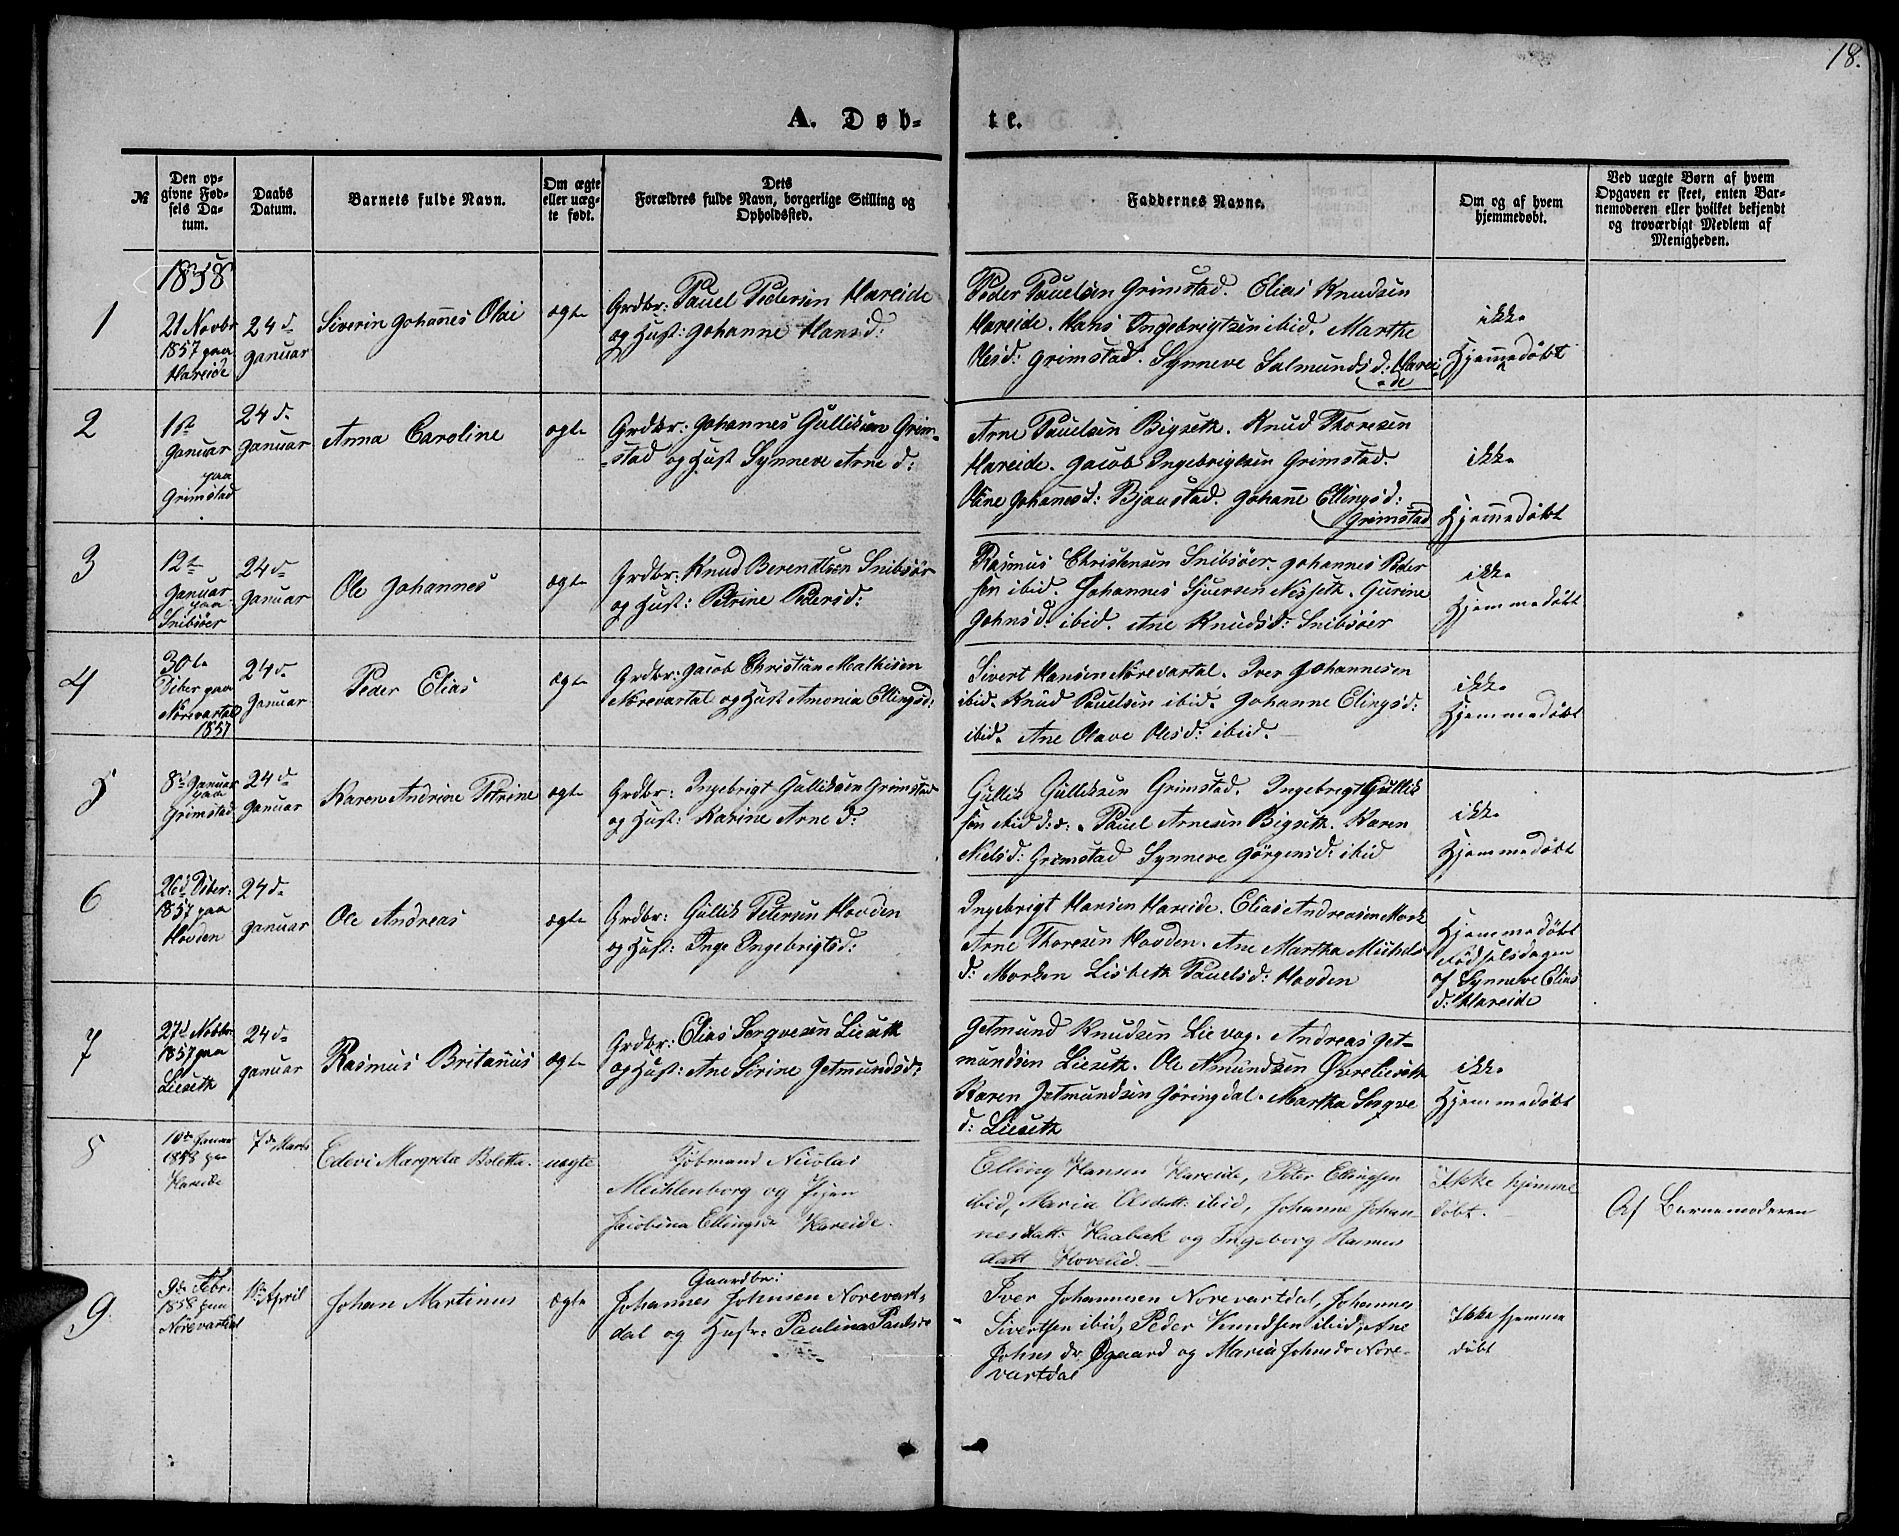 18.
A. Døb-te.
№
Den op-
givne Fød-
sels Da-
tum.
Daabs
Datum.
Barnets fulde Navn.
Om ægte
eller uæg-
te født.
Dets
Forældres fulde Navn, borgerlige Stilling og
Opholdssted.
Faddernes Navne.
Om og af hvem
hjemmedøbt.
Ved uægte Børn af hvem
Opgaven er skeet, enten Bar-
nemoderen eller hvilket bekjendt
og troværdigt Medlem af
Menigheden.
1858
1
21 Novbr
1857 paa
Hareide
24d
Januar
Siverin Johanes Olai
ægte
Grdbr: Pauel Pedersen Hareide
og Hust: Johanne Hansd:
Peder Pauelsen Grimstad. Elias Knudsen
Hareide. Hans Ingebrigtsen ibid. Marthe
Olesd: Grimstad. Synneve Salmundsd: Harei-
de
ikke
Hjemmedøbt
2
1ste
Januar
paa
Grimstad
24d.
Januar
Anna Caroline
ægte
Grdbr: Johannes Gulliksen Grim-
stad og Hust Synneve Arned:
Arne Pauelsen Bigseth. Knud Thoresen
Hareide. Jacob Ingebrigtsen Grimstad.
Ane Johanesd: Bjaastad. Johane Ellingsd:
Grimstad
ikke
Hjemmedøbt
3
12te
Januar
paa
Snibsøer
24d
Januar
Ole Johannes
ægte
Grdbr: Knud Berendtsen Snibsør
og Hust: Petrine Pedersd:
Rasmus Christensen Snibsøer. Johannes Peder
sen ibid. Johannes Sjversen Nesseth. Gurine
Johnsd: ibid. Ane Knudsd: Snibsøer
ikke
Hjemmedøbt
4
30te
Dzber paa
Nørevartal
1857
24d
Januar
Peder Elias
ægte
Grdbr: Jacob Christian Mathisen
Nørevartal og Hust Amonia Ellingsd:
Sivert Hansen Nørevartal. Iver Johannesen
ibid. Knud Pauelsen ibid. Johanne Elingsd:
ibid. Ane Olave Olesd: ibid.
ikke
Hjemmedøbt
5
8d Januar
paa
Grimstad
24d
Januar
Karen Andrine Petrine
ægte
Grdbr: Ingebrigt Gulliksen Grimstad
og Hust: Karine Arned:
Gullik Gulliksen Grimstad. Ingebrigt Gullik
sen ibid d: æ: Pauel Arnesen Bigseth. Karen
Nielsd: Grimstad Synneve Jørgensd: ibid
ikke
Hjemmedøbt
6
26d Dzber:
1857 paa
Hovden
24d.
Januar
Ole Andreas
ægte
Grdbr: Gullik Petersen Hovden
og Hust: Inge Ingebrigtsd:
Ingebrigt Hansen Hareide. Elias Andreasen Mork
Arne Thoresen Hovden. Ane Martha Michels
d: Morken Lisbeth Pauelsd: Hovden
Hjemmedøbt
Fødselsdagen
af Synneve Elias
d: Hareide
7
27d Novbr
1857 paa
Lieseth
24d
Januar
Rasmus Britanus
ægte
Grdbr: Elias Sergvesen Lieseth
og Hust: Ane Sirine Getmundsd:
Getmund Knudsen Lievog. Andreas Get-
mundsen Lieseth. Ole Amundsen Øvrelieseth
Karen Getmundsen Gøringdal. Martha Sergve
d: Lieseth
ikke
Hjemmedøbt
8
10de Januar
1858 paa
Hareide
7de Marts
Edevi Margreta Boletta.
uægte
Kjøbmand Nicolai
Meihlenborg og Pigen
Jacobina Ellingsdr Hareide.
Elling Hansen Hareide, Peter Ellingsen
ibid, Maria Olsdatt: ibid, Johanne Johan-
nesdatt: Haabæk og Ingeborg Rasmus
datt Hovelid.
Ikke hjemme
døbt.
Af Barnemoderen
9.
9de Febr:
1858 paa
Nørevartdal
1ste April
Johan Martinus
ægte
Gaardbr:
Johannes Johnsen Norevart-
dal og Hustr: Paulina Paulsdr
Iver Johannesen Norevartdal, Johannes
Sivertsen ibid, Peder Knudsen ibid, Ane
Johns dr Øgaard og Maria Johnsdr Nore-
vartdal
Ikke hjemme
døbt